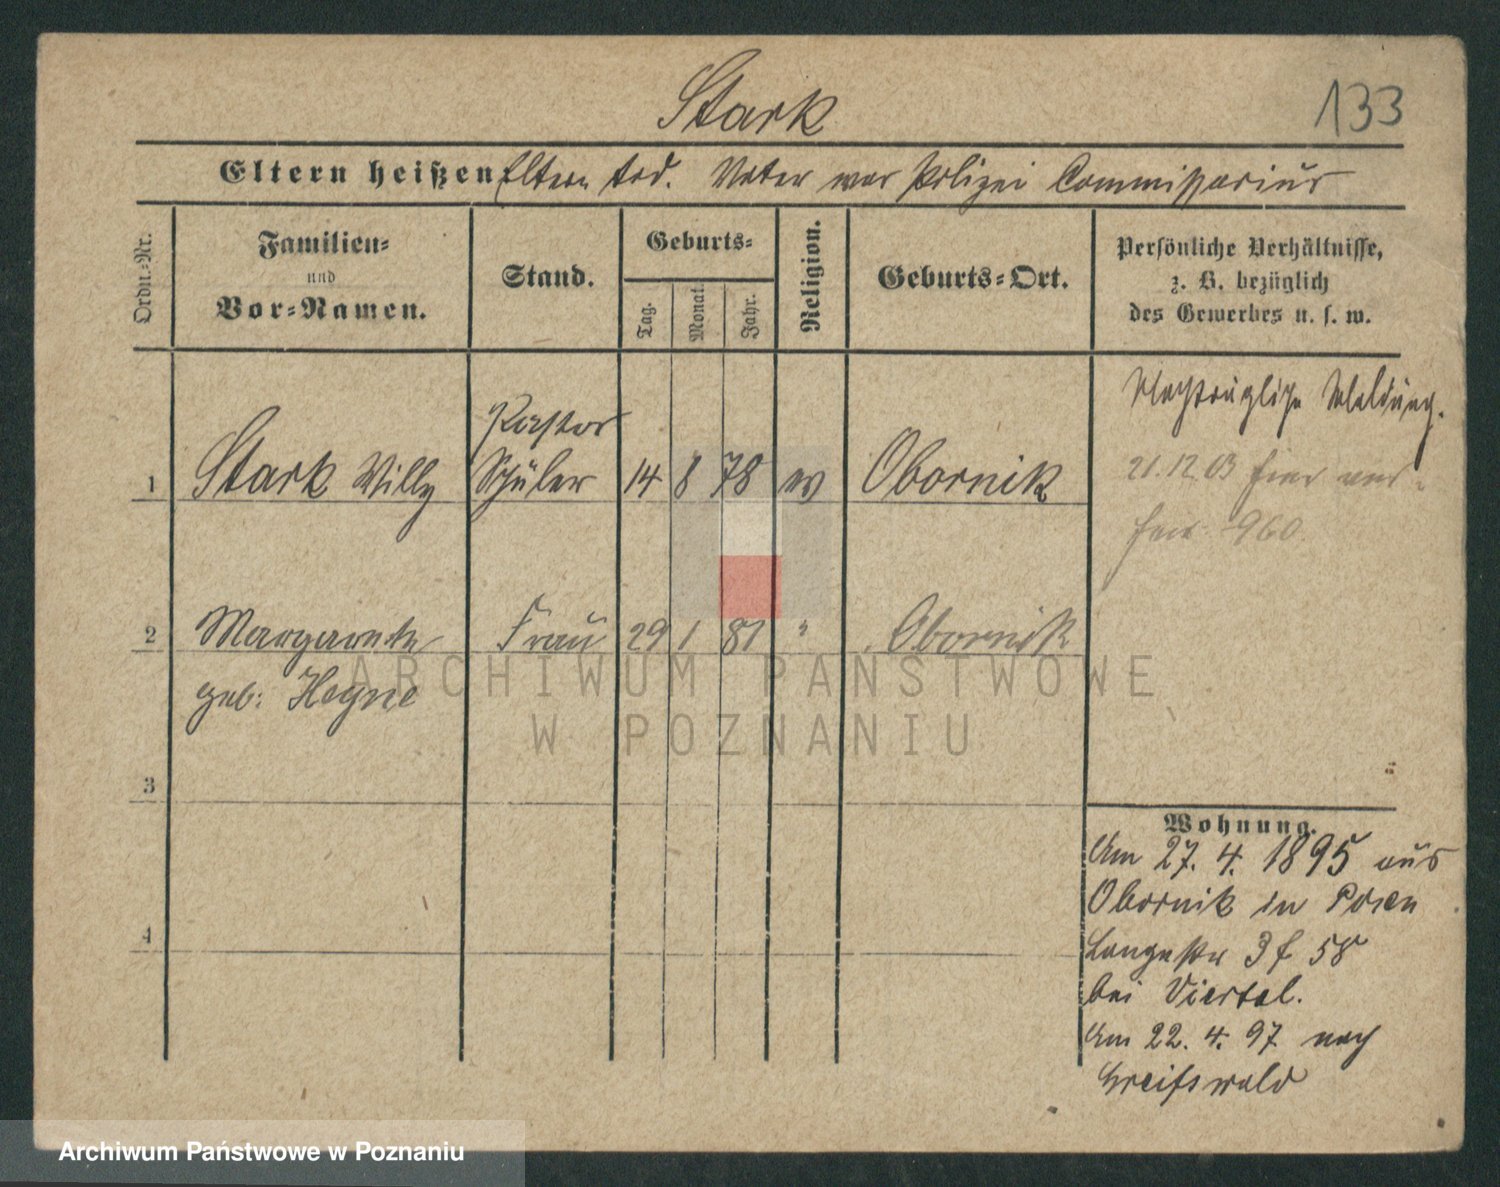 Stark
133
Eltern heißen Eltern tod. Vater war Polizei Commissarius
Ordn.-Nr.
Familien-
und
Vor-Namen.
Stand.
Geburts-
Tag.
Monat.
Jahr.
Religion.
Geburts-Ort.
Persönliche Verhältnisse,
z. B. bezüglich
des Gewerbes u. s. w.
Nachträgliche Meldung.
Pastor
1 Stark Willy Schüler 14 8 78 ev Obornik
21.12.03 hier
960
2 Margarete Frau 29 1 81 " Obornik
geb:
3
4
Wohnung.
Am 27. 4. 1895 aus
Obornik in Posen
Langestr 3 f 58
bei Viertel.
Am 22. 4. 97 nach
Greifswald
ARCHIWUM PAŃSTWOWE
W POZNANIU
Archiwum Państwowe w Poznaniu